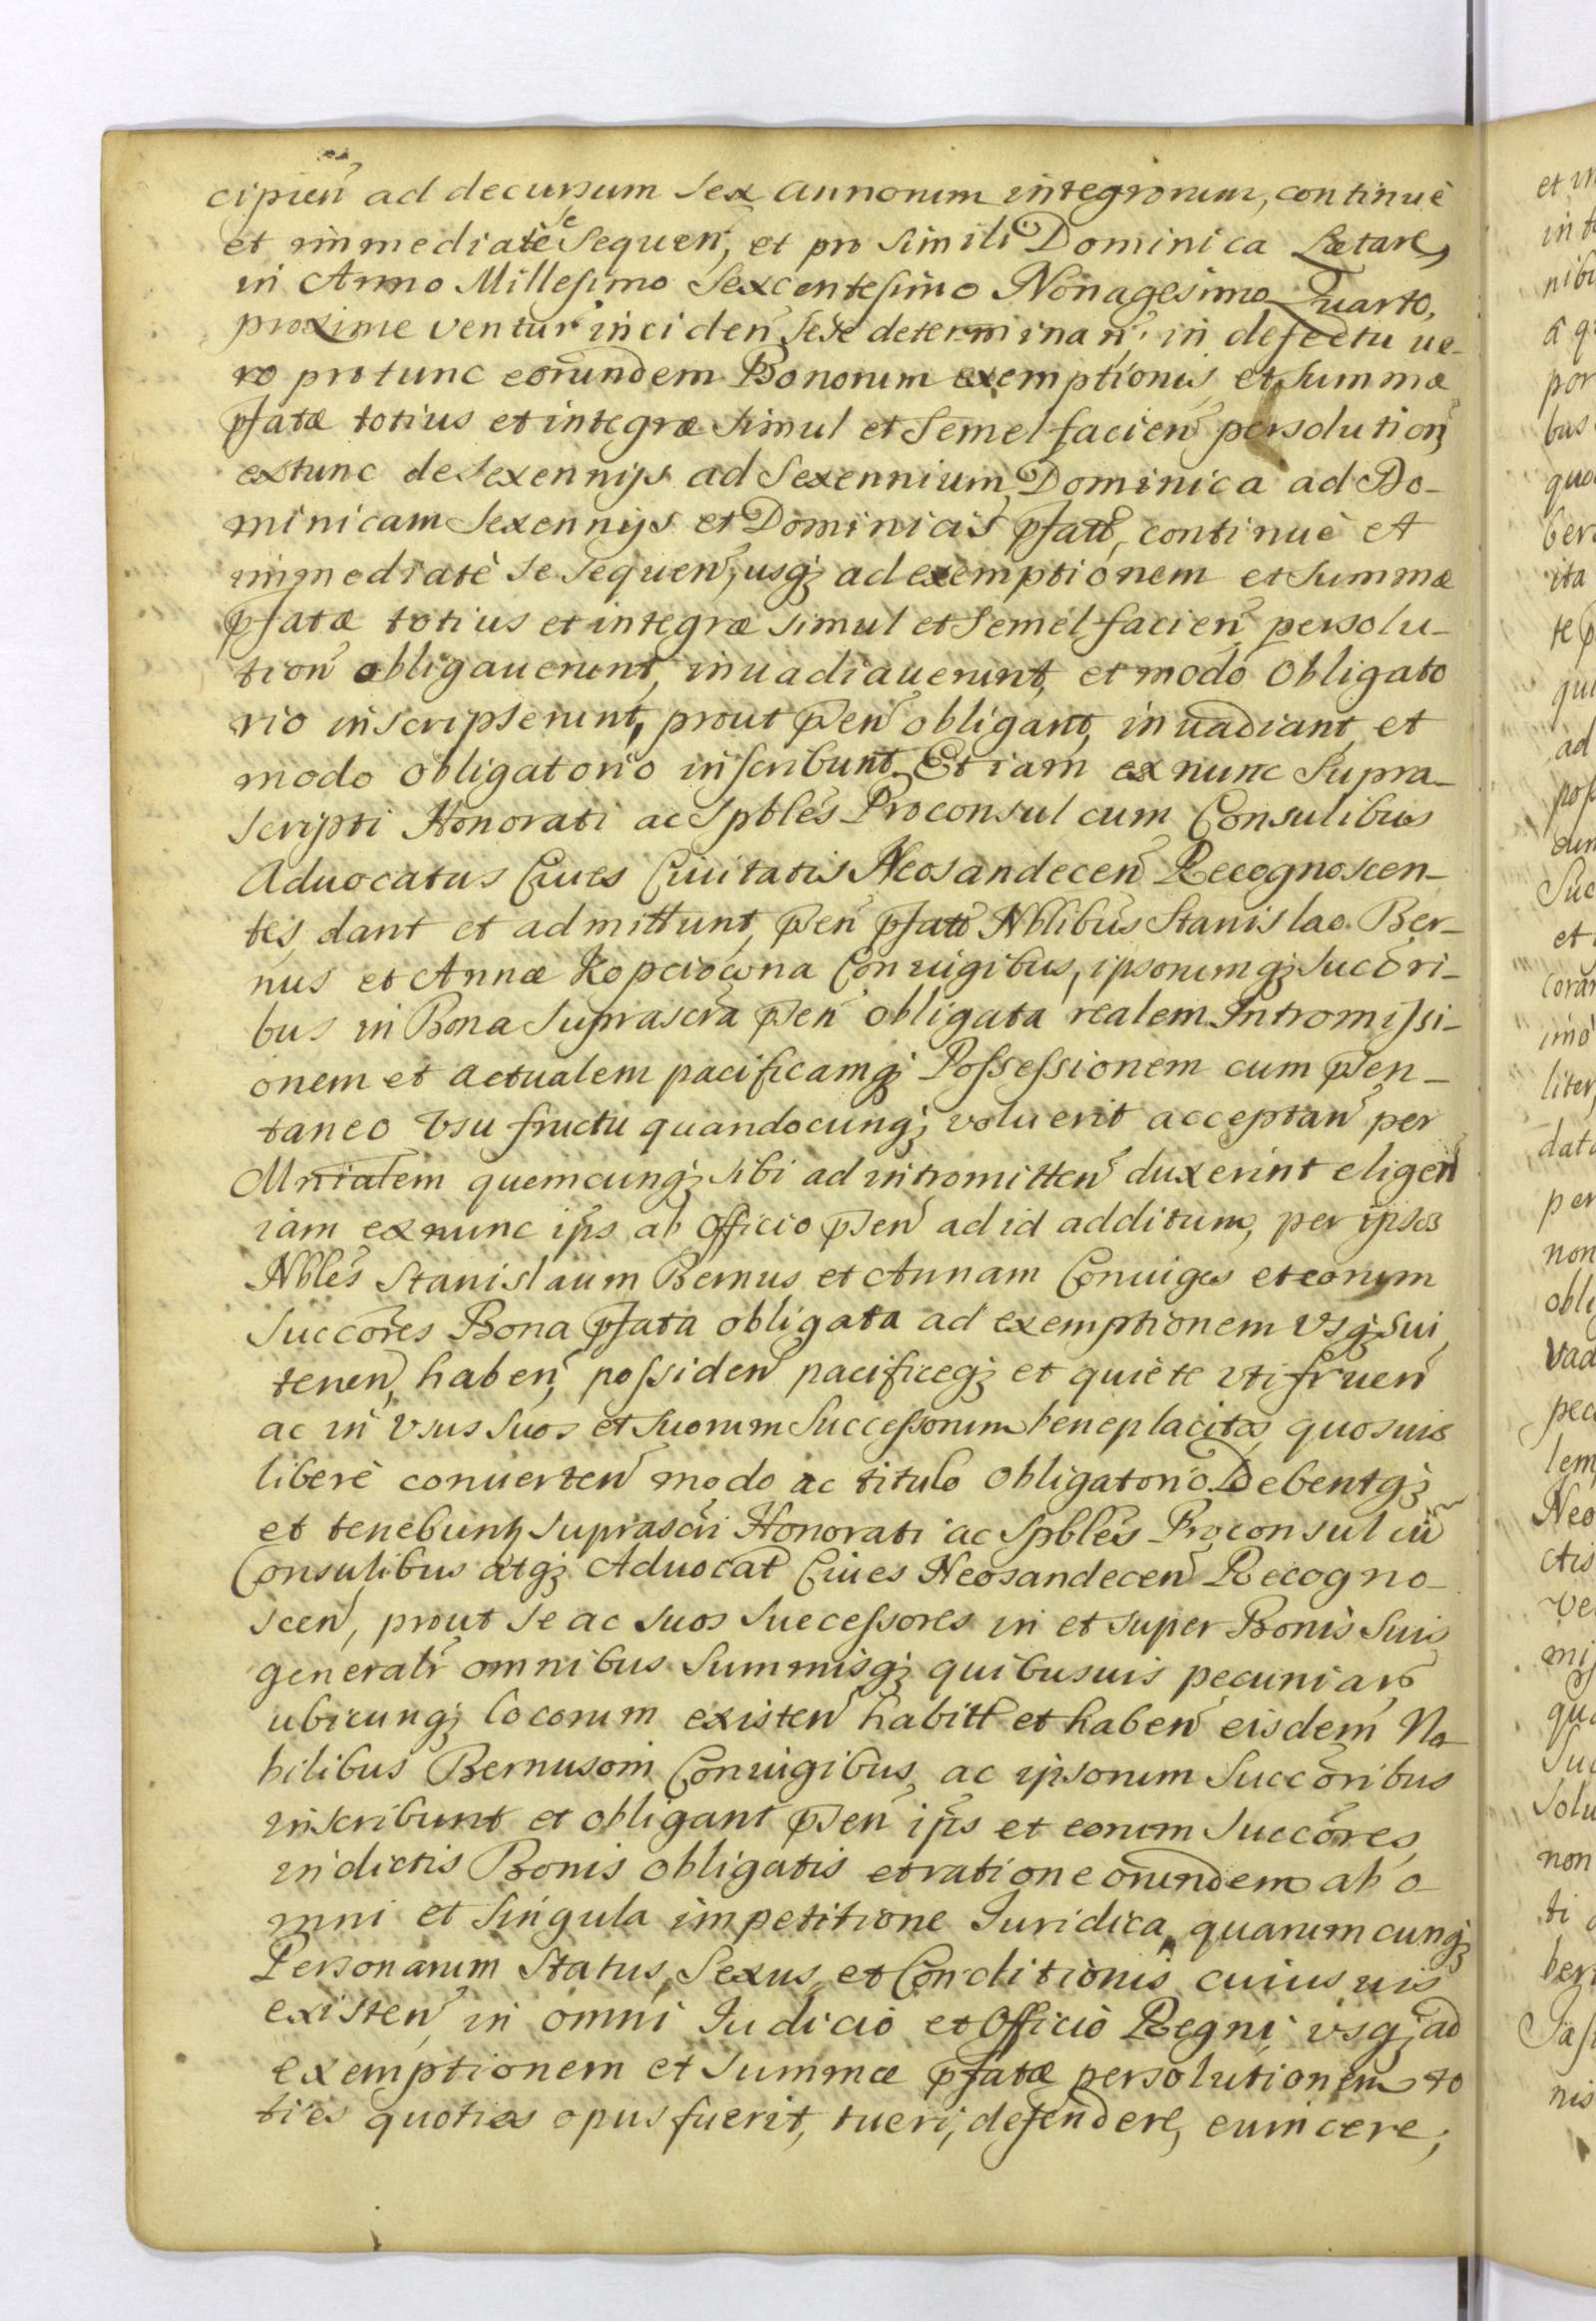 cipień ad decursum sex annorum integrorum, continuè
et immediatè se Sequeń, et pro simili Dominica Lætare,
in Anno Millesimo Sexcentesimo Nonagesimo Quarto,
proxime ventur̃ incideń sese determinań: in defectu ue-
ro pro tunc eorundem Bonorum exemptionis, et summæ
pfatæ totius et integræ simul et Semel facień persolutioń
extunc de Sexennijs ad Sexennium, Dominica ad Do-
minicam Sexennijs et Dominicis pfatt, continuè et
immediatè se sequeń, usq; ad exemptionem et summæ
pfatæ totius et integræ simul et Semel facień persolu-
tioń obligauerunt, inuadiauerunt, et modo Obligato
rio inscripserunt, prout pseń obligant, inuadiant, et
modo obligatorio inscribunt. Et iam ex nunc Supra-
scripti Honorati ac Spbles Proconsul cum Consulibus
Aduocatus Ciues Ciuitatis Neosandeceń Recognoscen-
tes, dant et admittunt, pseń pfatt Nblibus Stanislao Ber-
nus et Annæ Kopciowna Coniugibus, ipsorumq; Succori-
bus in Bona Suprascra pseń obligata realem Intromissi-
onem et actualem pacificamq; Possessionem cum psen-
taneo Vsu fructu quandocunq; voluerit acceptań per
Mnialem quemcunq; sibi ad intromitteń duxerint eligeń
iam ex nunc ips ab Officio pseń ad id additum, per ipsos
Nbles Stanislaum Bernus et Annam Coniuges et eorum
Succores Bona pfata obligata ad exemptionem Vsq; Sui
teneń, habeń, possideń pacificeq; et quiete vti frueń
ac in Vsus suos et suorum Successorum beneplacitos, quosuis
liberè conuerteń modo ac titulo obligatorio. Debentq;
et tenebuntz suprascri Honorati ac Spbles Proconsul cũ
Consulibus atq; Aduocat Ciues Neosandeceń Recogno-
sceń, prout se ac suos Successores in et super Bonis Suis
generalr omnibus Summisq; quibusuis pecuniar
ubicunq; locorum existeń habitt et habeń eisdem No-
bilibus Bernusom Coniugibus, ac ipsorum Succoribus
inscribunt et obligant pseń ips et eorum Succores,
in dictis Bonis obligatis et ratione eorundem ab o-
mni et singula impetitione Iuridica, quarumcunq;
Personarum Status, Sexus, et Conditionis cuiusuis
existeń, in omni Iudicio et Officio Regni vsq; ad
exemptionem et summæ pfatæ persolutionem to
ties quoties opus fuerit, tueri, defendere, euincere,